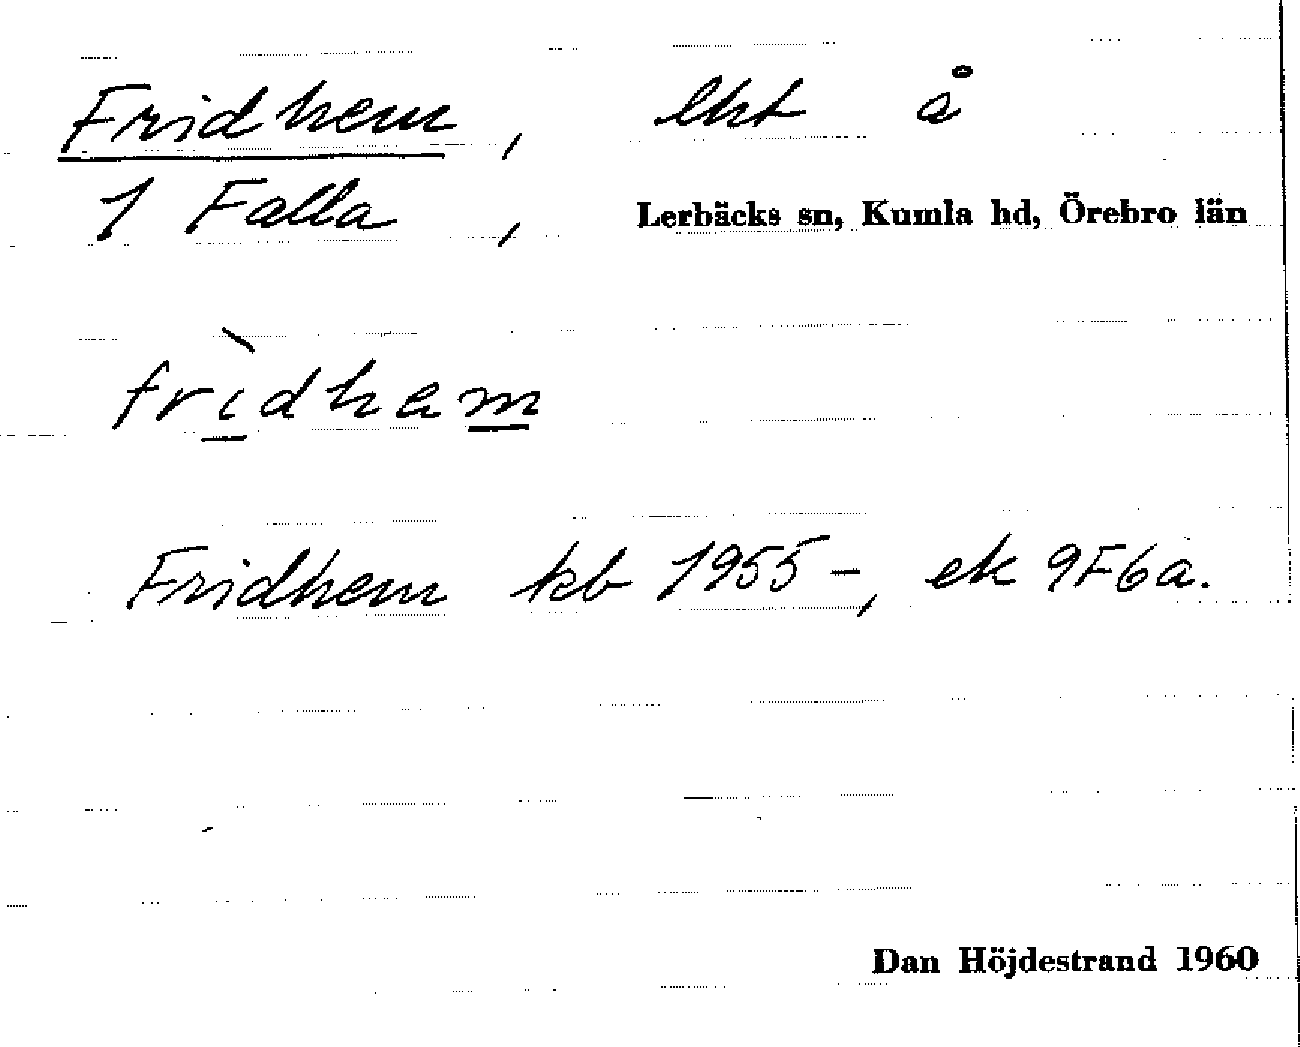 Fridhem, lht å
1 Falla, Lerbäcks sn, Kumla hd, Örebro län
frìdham
Fridhem kb 1955-, ek 9F6a.
Dan Höjdestrand 1960